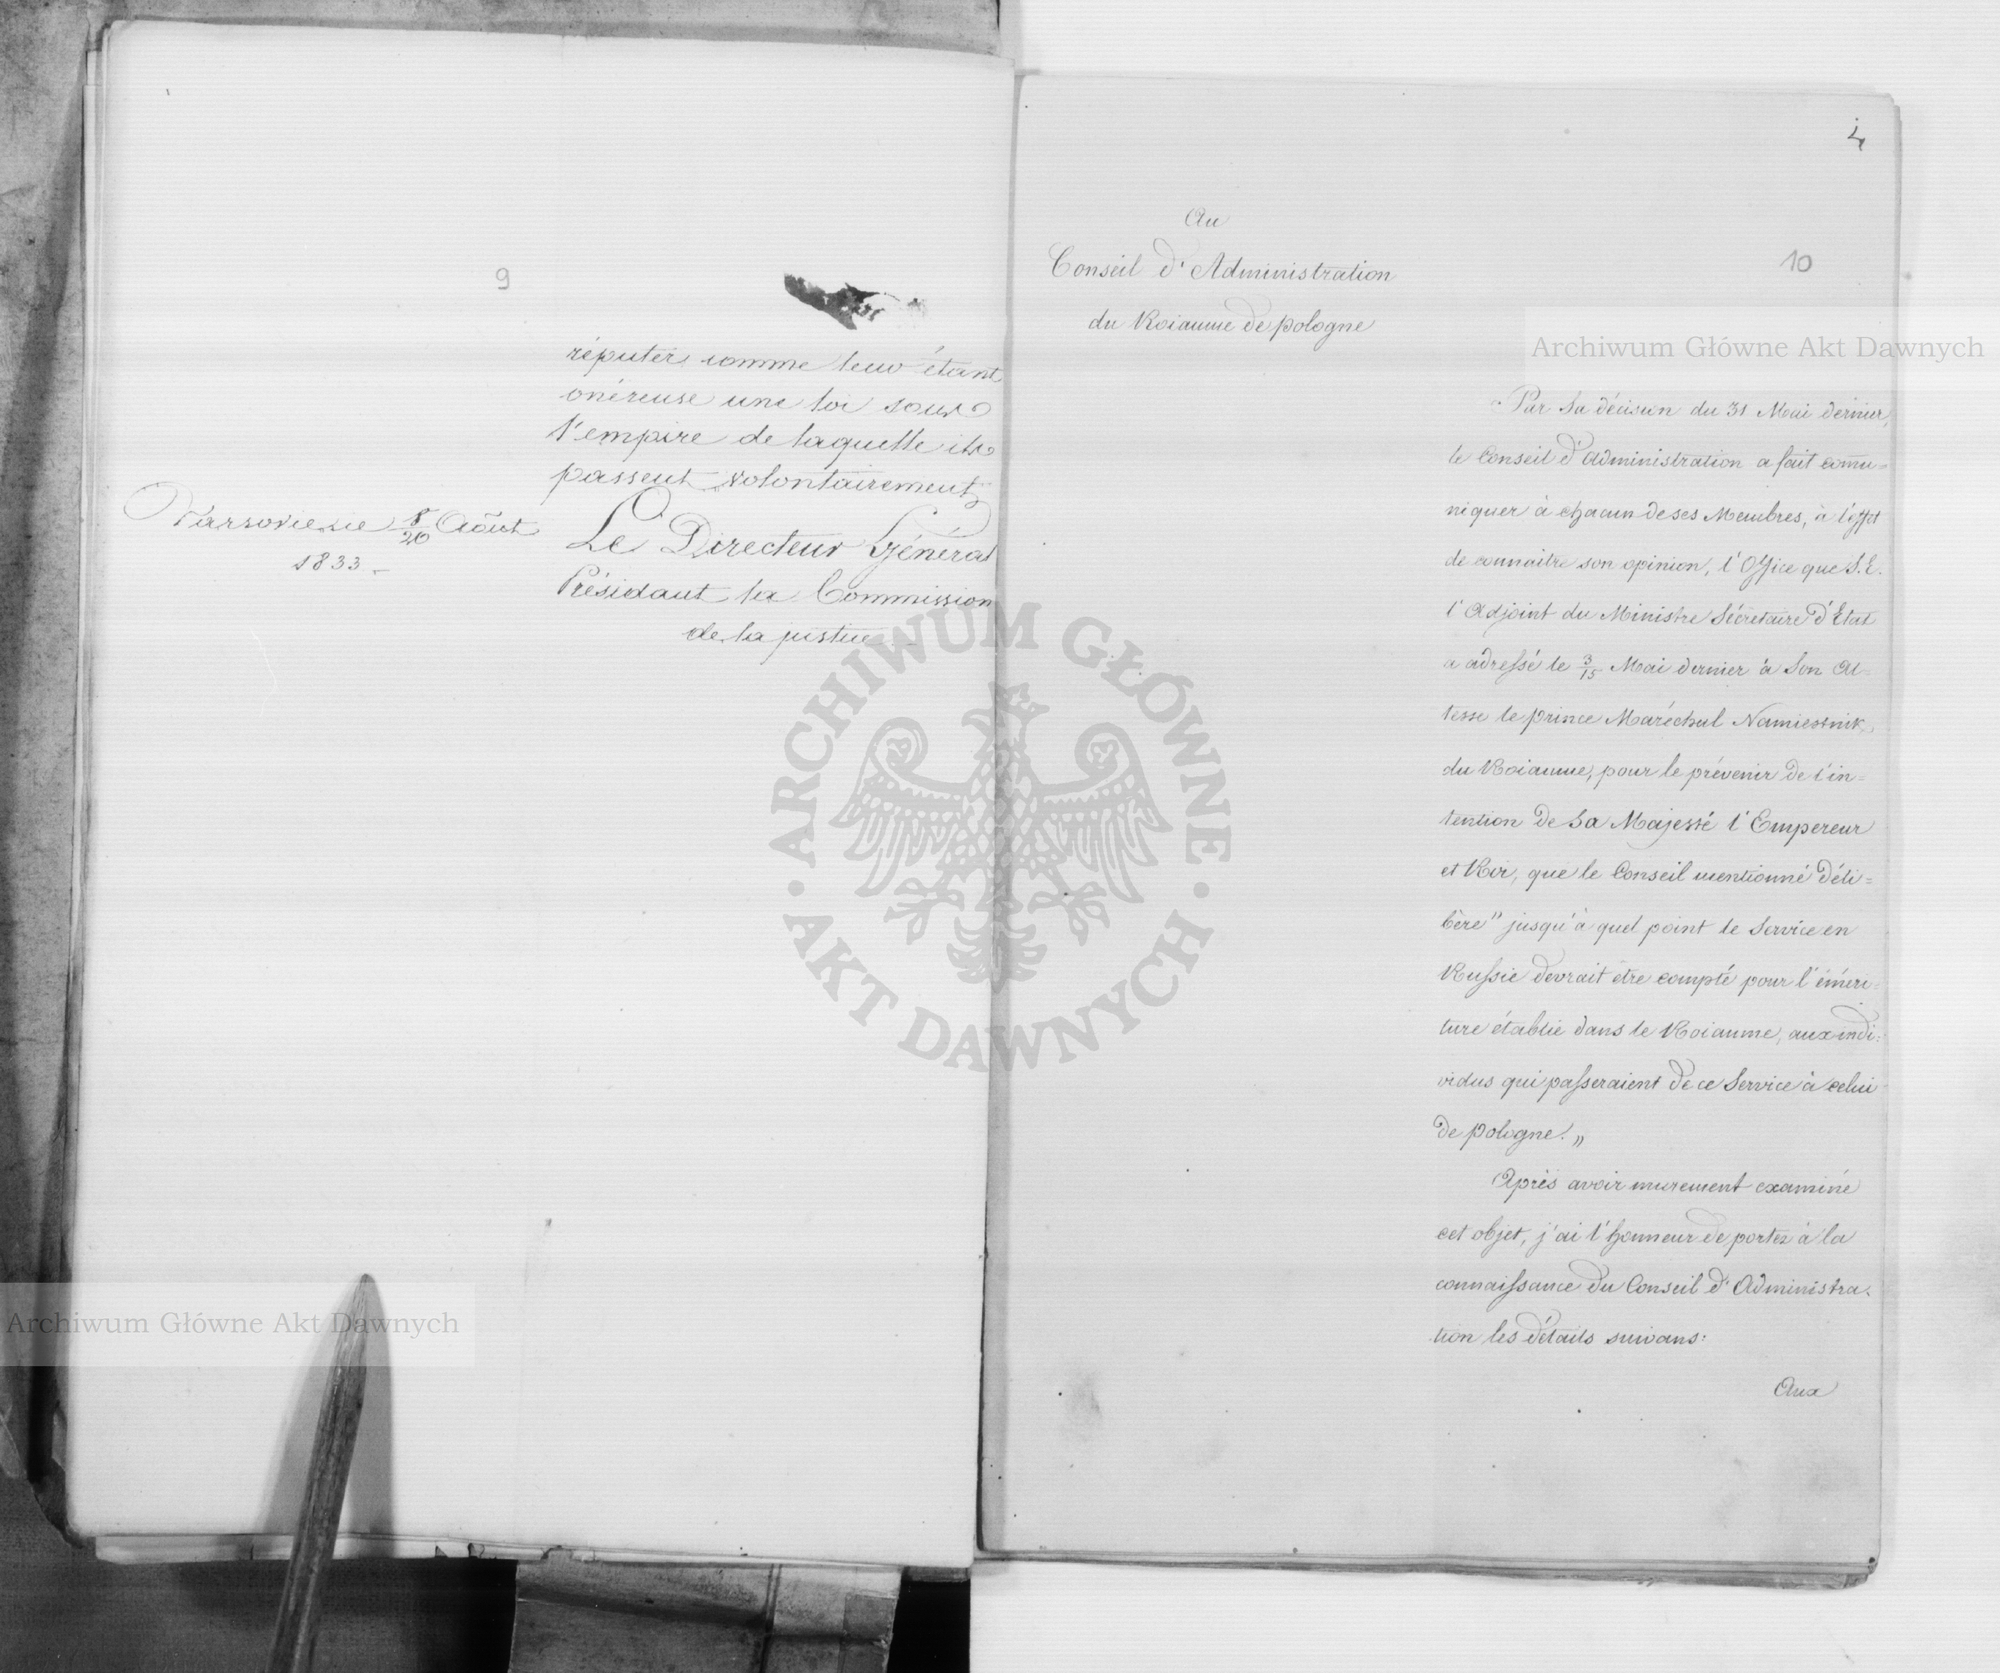 9
réputer comme leur étant
onéreuse une loi sous
l'empire de laquelle ils
passent volontairement
Varsovie le 8/20 Août
1833 -
Le Directeur Général
Présidant la Commission
de la justice
4
10
Au
Conseil d'Administration
du Roiaume de pologne
Par Sa décision du 31 Mai dernier,
le Conseil d'Administration a fait comu=
niquer à chacun de ses Membres, à l'effet
de connaitre son opinion, l'Office que S.E.
l'Adjoint du Ministre Sécretaire d'Etat
a adressé le 3/15 Mai dernier à Son Al=
tesse le prince Maréchal Namiestnik
du Roiaume, pour le prévenir de l'in=
tention de Sa Majesté l'Empereur
et Roi, que le Conseil mentionné déli=
bère " jusqu'à quel point le Service en
Russie devrait être compté pour l'éméri=
ture établie dans le Roiaume, aux indi=
vidus qui passeraient de ce Service à celui
de pologne. "
Après avoir murement examiné
cet objet, j'ai l'honneur de porter à la
connaissance du Conseil d'Administra=
tion les détails suivans:
Aux
Archiwum Główne Akt Dawnych
Archiwum Główne Akt Dawnych
ARCHIWUM GŁÓWNE AKT DAWNYCH